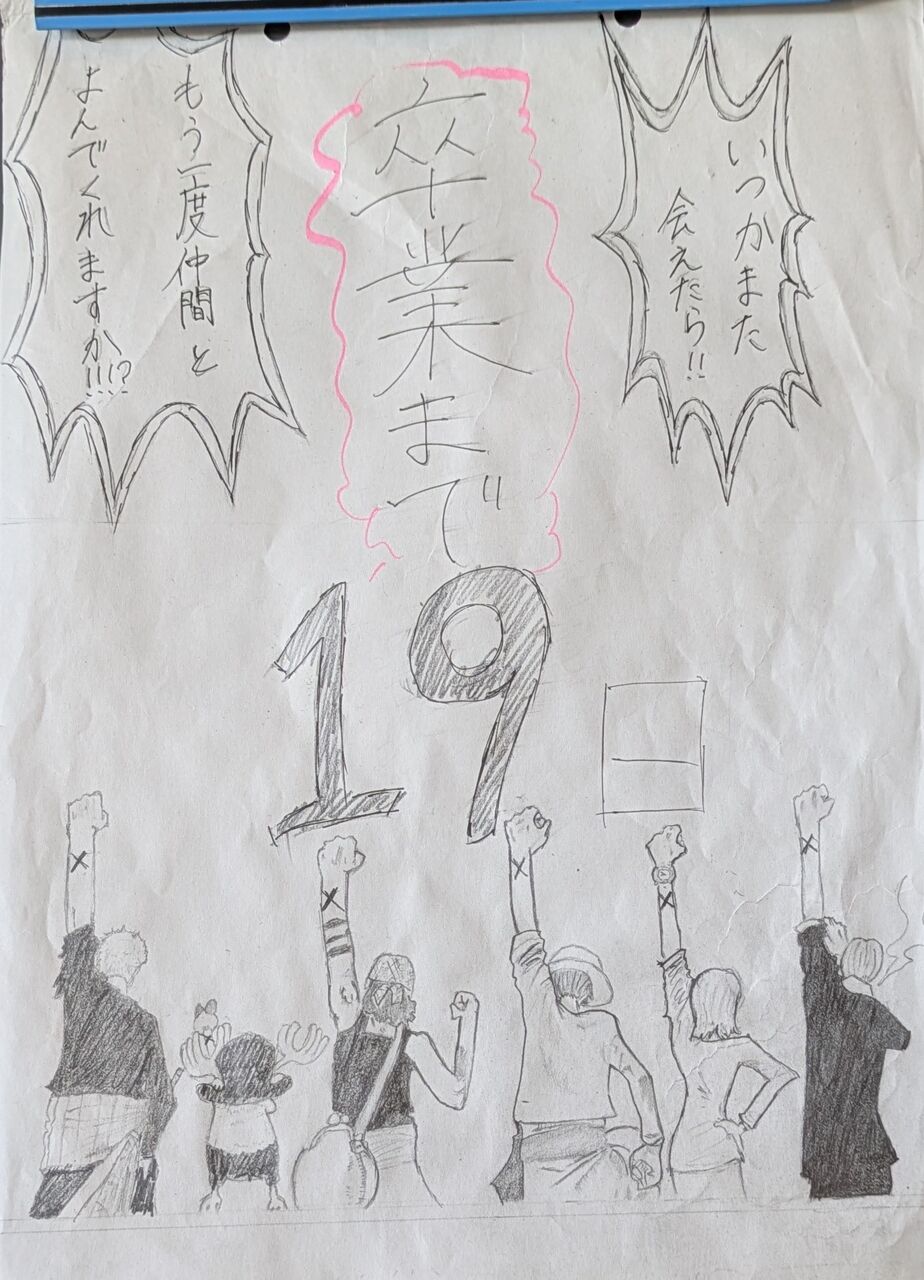 いつかまた
会えたら!!
卒業まで
もう一度仲間と
よんでくれますか!!!?
19日